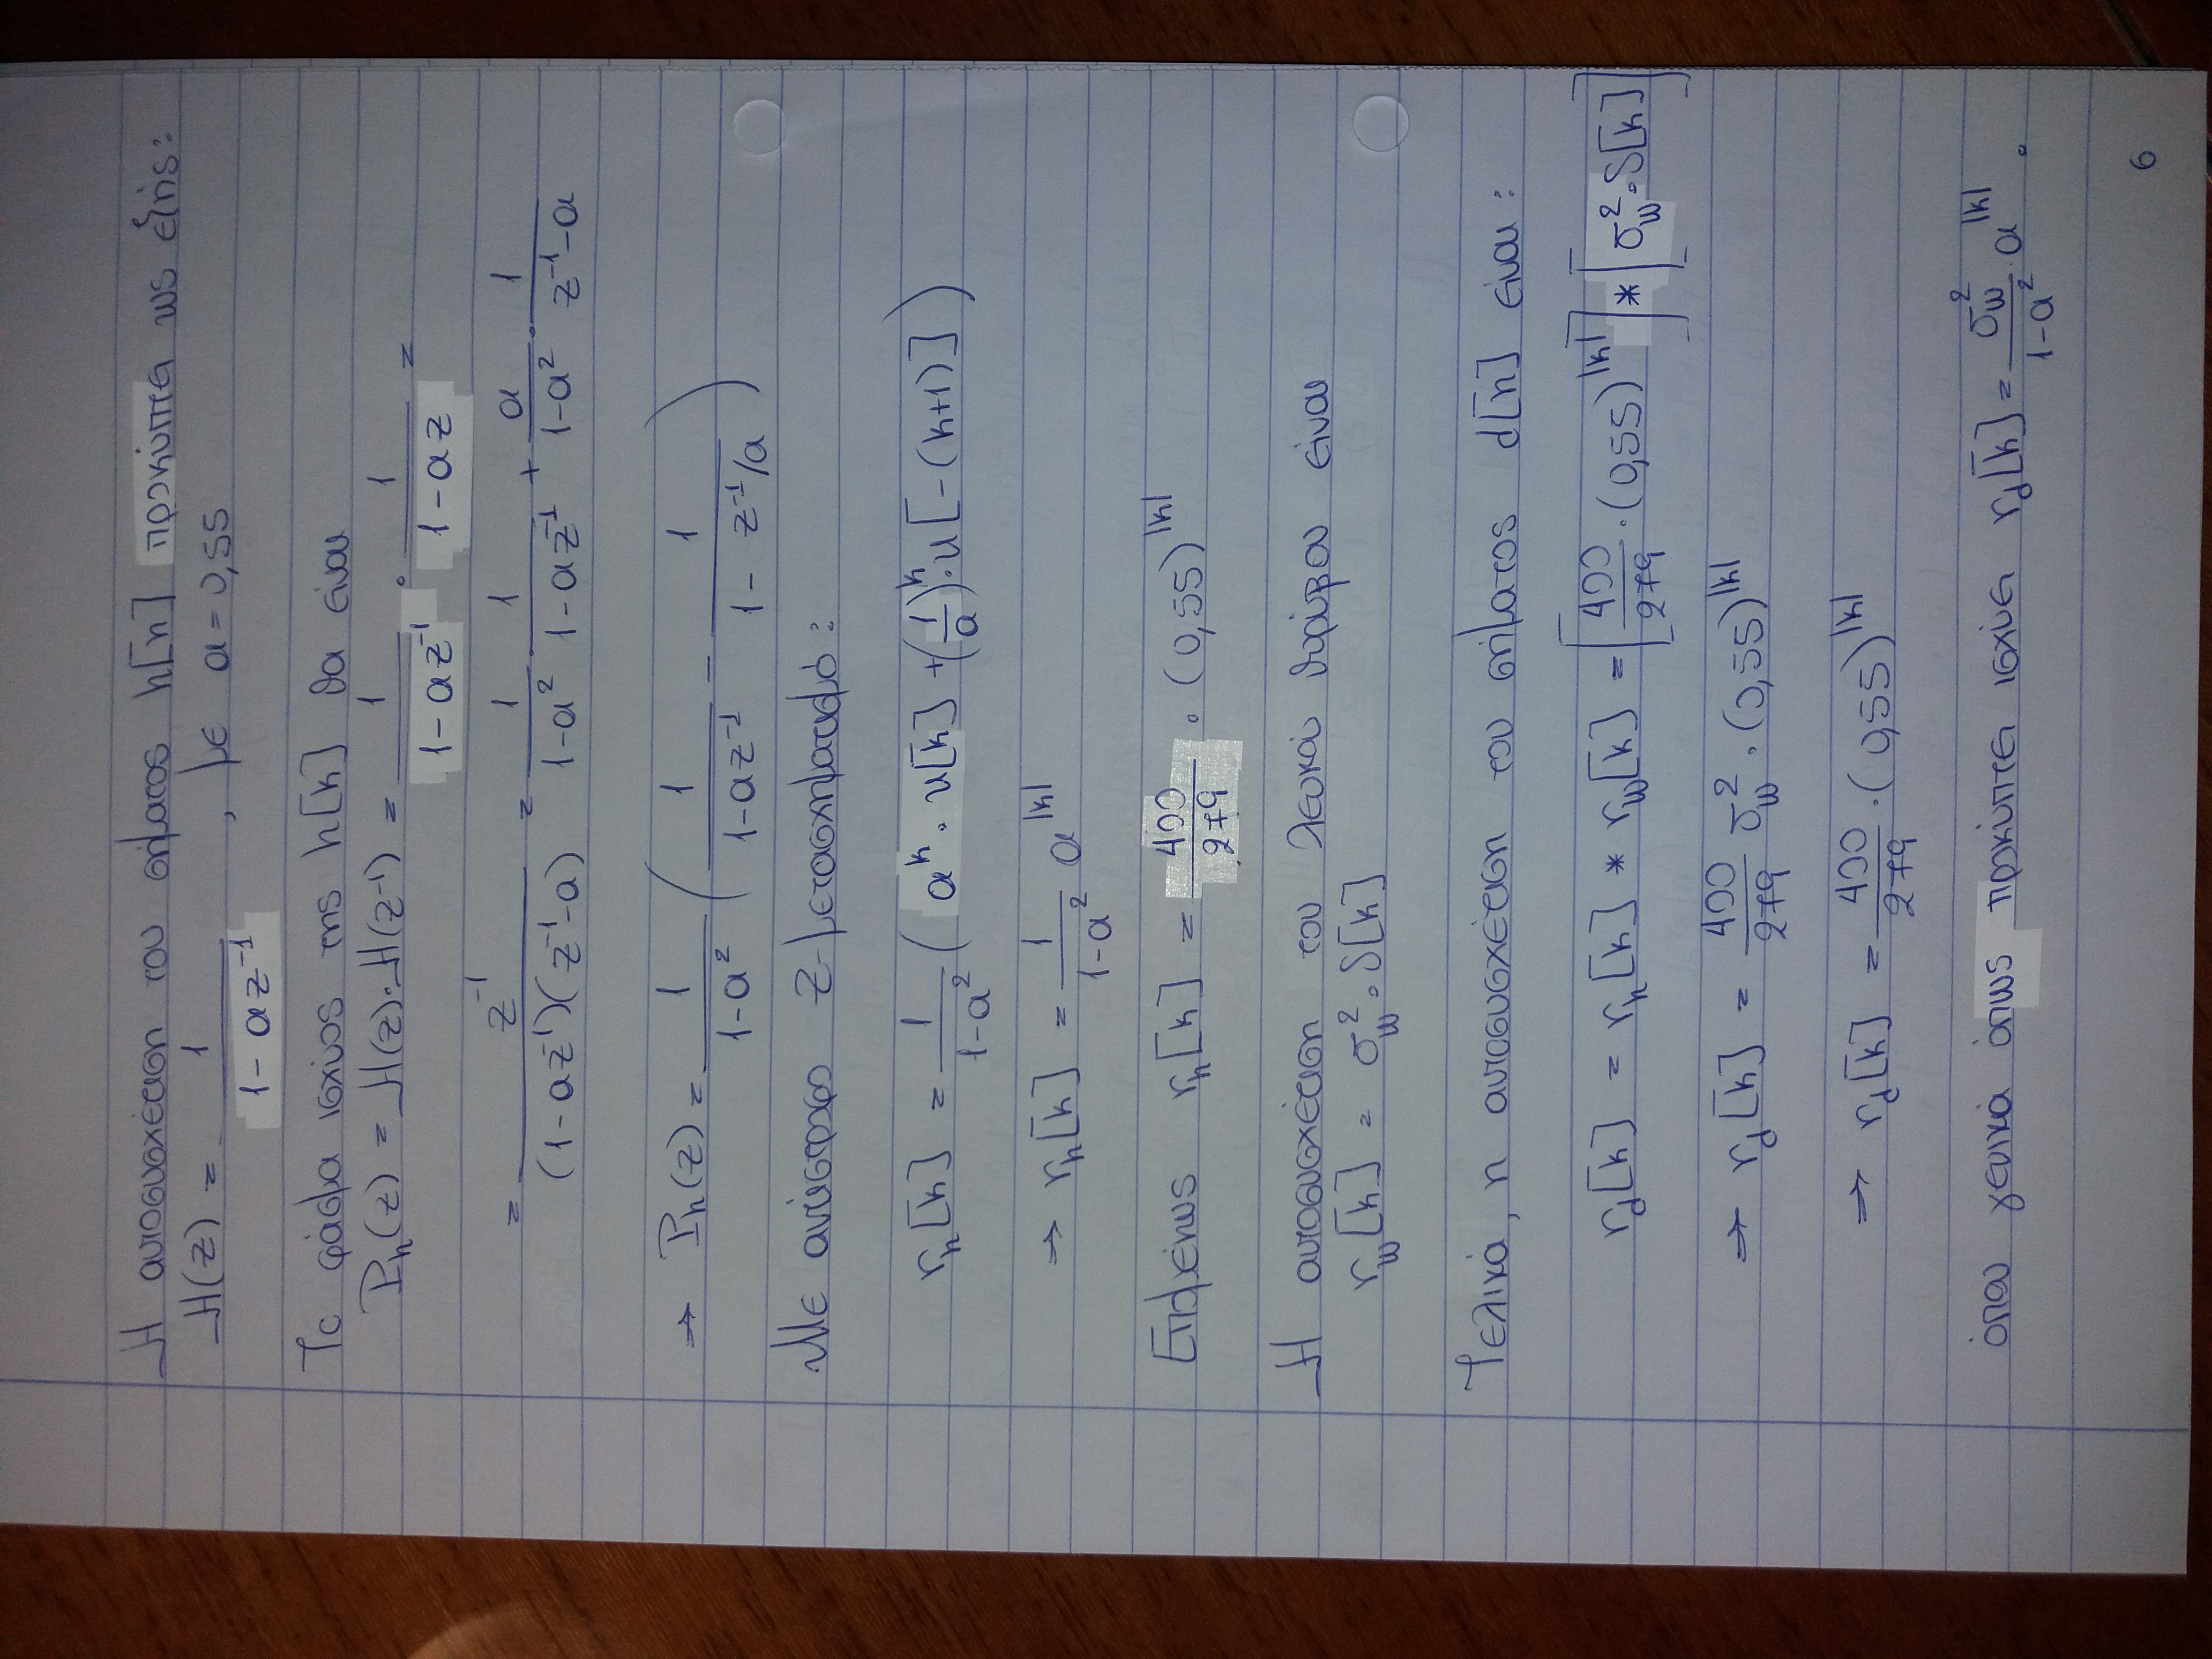 Η αυτοσυσχέτιση του σήματος h[n] προκύπτει ως εξής:
H(z) = 1 / (1 - az⁻¹) , με a = 0,55
Το φάσμα ισχύος της h[k] θα είναι
Pₕ(z) = H(z)·H(z⁻¹) = 1/(1 - az⁻¹) · 1/(1 - az) =
= z⁻¹ / ((1 - az⁻¹)(z⁻¹ - a)) = 1/(1 - a²) · 1/(1 - az⁻¹) + a/(1 - a²) · 1/(z⁻¹ - a)
⇒ Pₕ(z) = 1/(1 - a²) ( 1/(1 - az⁻¹) - 1/(1 - z⁻¹/a) )
Με αντίστροφο Z-μετασχηματισμό:
rₕ[k] = 1/(1 - a²) ( aᵏ · u[k] + (1/a)ᵏ · u[-(k+1)] )
⇒ rₕ[k] = 1/(1 - a²) a^|k|
Επομένως rₕ[k] = 400/279 · (0,55)^|k|
Η αυτοσυσχέτιση του λευκού θορύβου είναι
r_w[k] = σ_w² · δ[k]
Τελικά, η αυτοσυσχέτιση του σήματος d[n] είναι:
r_d[k] = rₕ[k] * r_w[k] = [400/279 · (0,55)^|k|] * [σ_w² · δ[k]]
⇒ r_d[k] = 400/279 σ_w² · (0,55)^|k|
⇒ r_d[k] = 400/279 · (0,55)^|k|
όπου γενικά όπως προκύπτει ισχύει r_d[k] = σ_w²/(1 - a²) a^|k| .
6